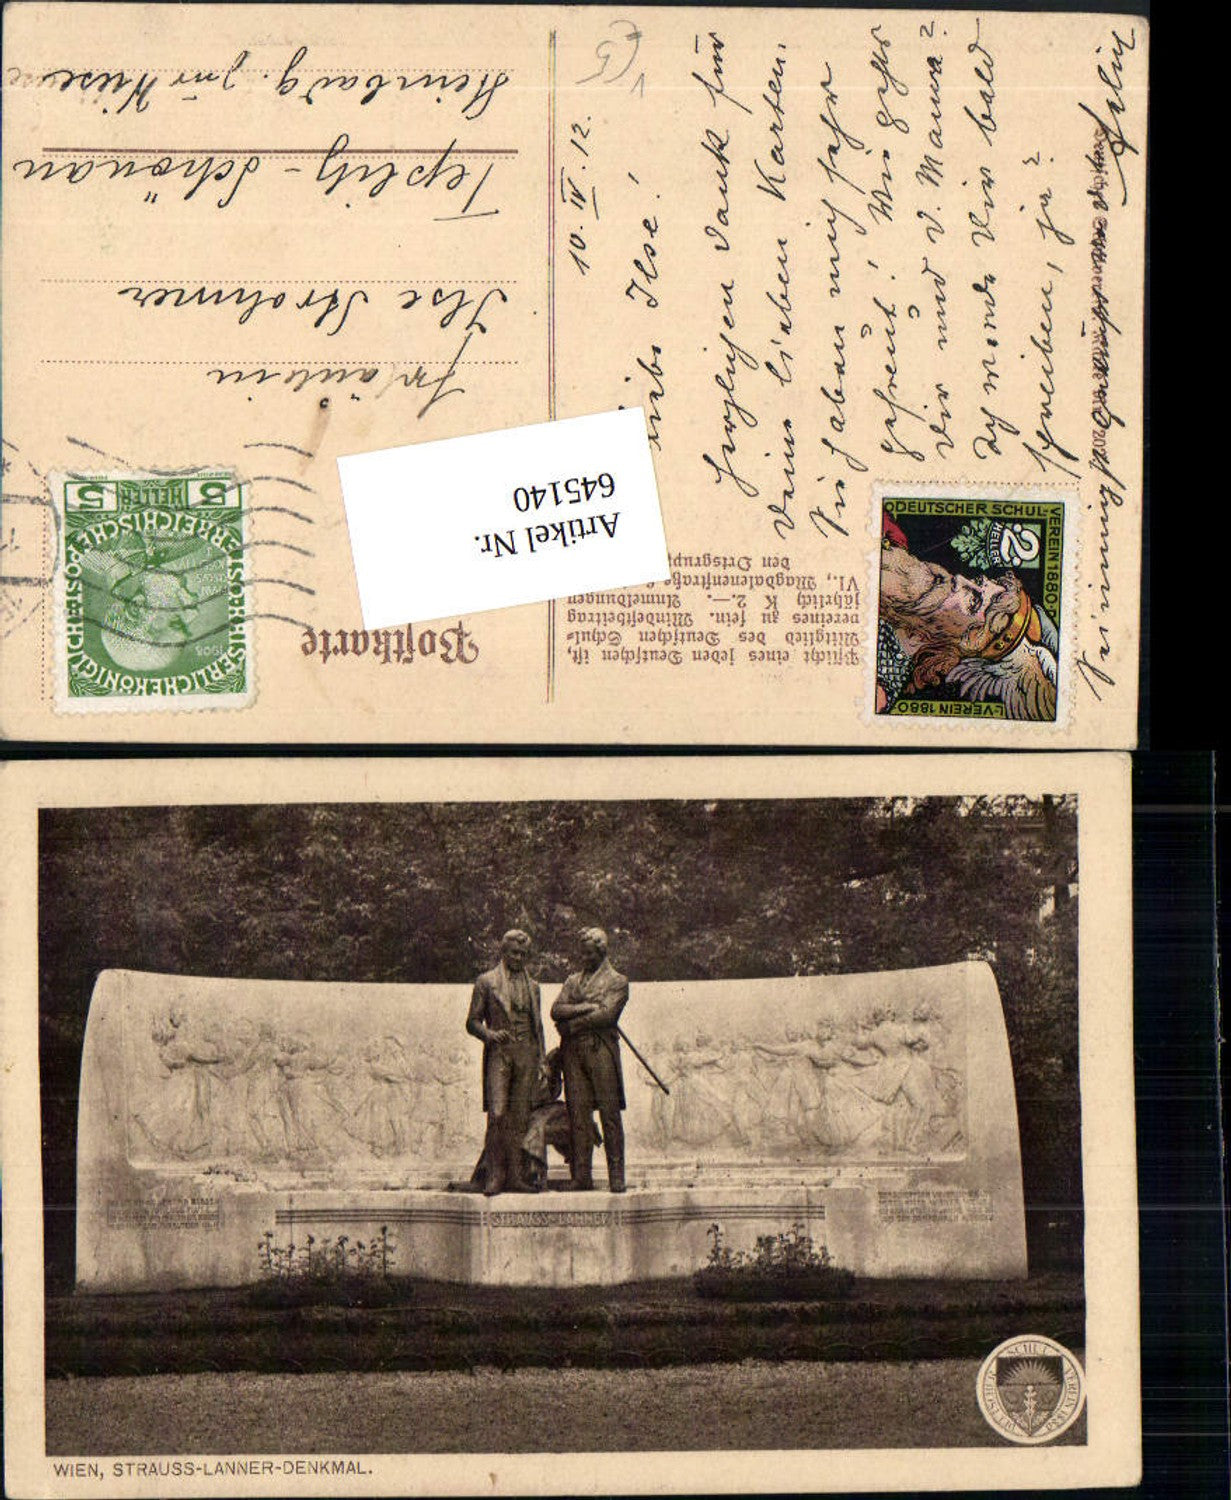 10. IV. 12.
Liebe Ilse!
Herzlichen Dank für
Deine lieben Karten.
Sie haben mich sehr
gefreut! Wie gehts
Dir und d. Mama?
Ich werde Dir bald
schreiben, ja?
Postkarte
Fräulein
Ilse Strohmer
Teplitz-Schönau
Pflicht eines jeden Deutschen ist,
Mitglied des Deutschen Schul-
vereines zu sein. Mindestbeitrag
jährlich K 2.—. Anmeldungen
VI., Magdalenenstraße
den Ortsgrupp
Artikel Nr.
645140
5 HELLER 5
KAISERLICHEKÖNIGLICHE
ÖSTERREICHISCHE POST
1908
DEUTSCHER SCHUL-
VEREIN 1880
2
HELLER
L-VEREIN 1880
STRAUSS-LANNER
DEUTSCHER SCHULVEREIN 1880
WIEN, STRAUSS-LANNER-DENKMAL.